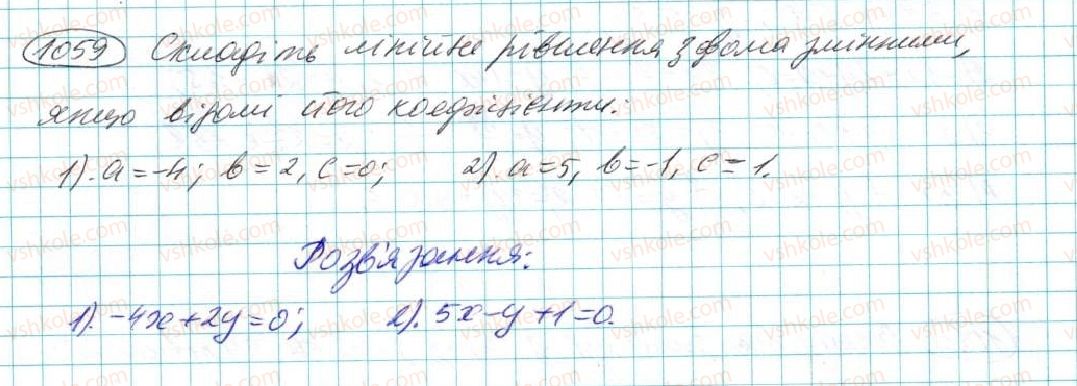 1059 Складіть лінійне рівняння з двома змінними,
якщо відомі його коефіцієнти:
1). a = -4; b = 2, c = 0; 2). a = 5, b = -1, c = 1.
Розв'язання:
1). -4x + 2y = 0; 2). 5x - y + 1 = 0.